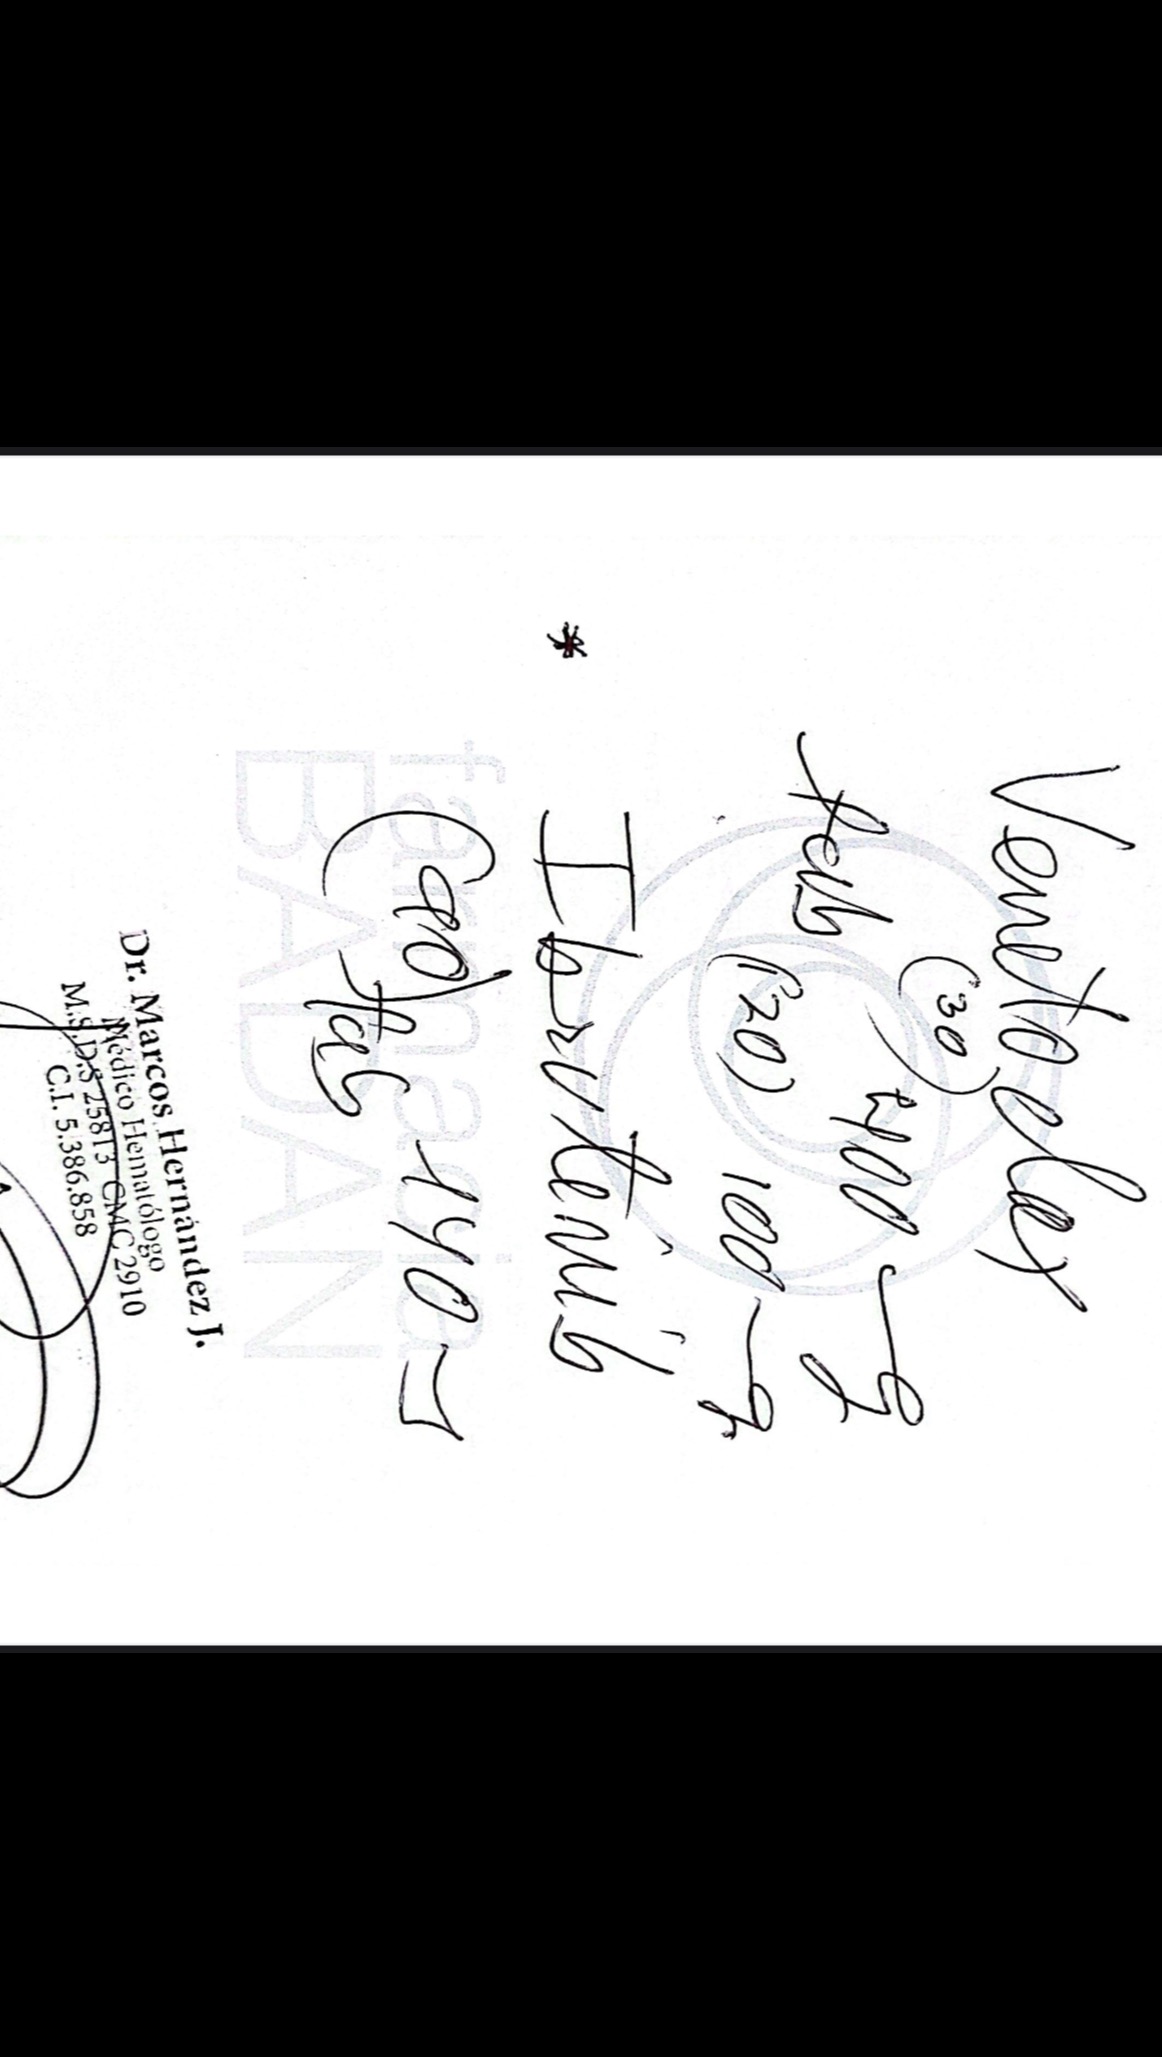 Venetoclex
(30)
tab 400 mg
(120) 100 mg
* Ibrutinib
140
farmacia
BADAN
Dr. Marcos Hernández J.
Médico Hematólogo
M.S.D.S 25813 CMC 2910
C.I. 5.386.858